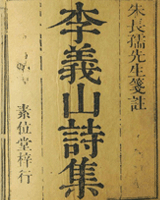 朱長孺先生箋註
李義山詩集
素位堂梓行